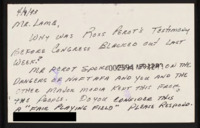 4/4/93
Mr. Lamb,
Why was Ross Perot's testimony
before Congress blacked out last
week?
Mr Perot spoke on the
dangers of NAFTA and you and the
other major media kept this from
the people. Do you consider this
a "fair playing field" Please respond.